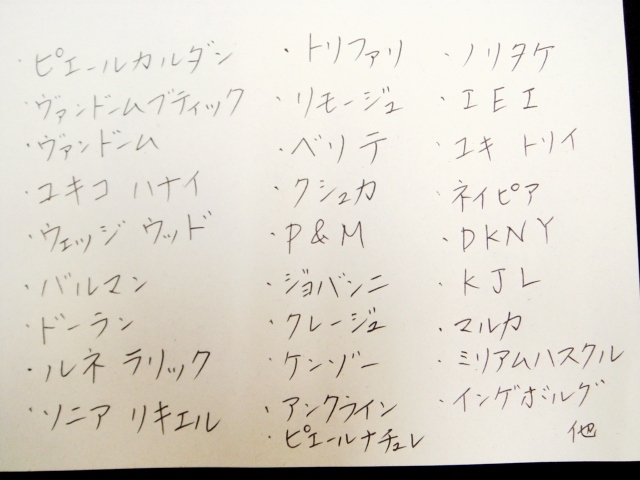 ・ピエールカルダン
・ヴァンドームブティック
・ヴァンドーム
・ユキコ ハナイ
・ウェッジ ウッド
・バルマン
・ドーラン
・ルネ ラリック
・ソニア リキエル
・トリファリ
・リモージュ
・ベリテ
・クシュカ
・P&M
・ジョバンニ
・クレージュ
・ケンゾー
・アンクライン
・ピエールナチュレ
・ノリタケ
・IEI
・ユキ トリイ
・ネイピア
・DKNY
・KJL
・マルカ
・ミリアムハスクル
・インゲボルグ
他